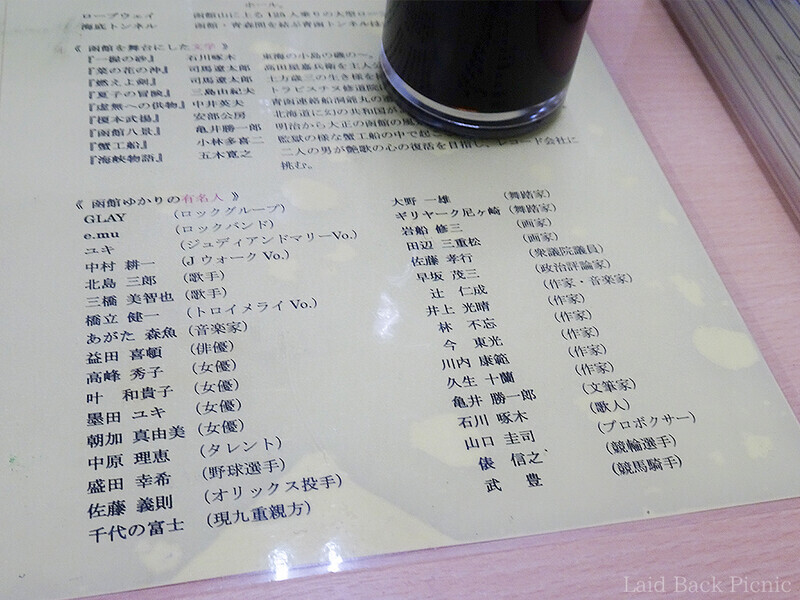 ホール。
ロープウェイ 函館山に上る125人乗りの大型ロー
海底トンネル 函館・青森間を結ぶ青函トンネルは
《 函館を舞台にした文学 》
『一握の砂』 石川啄木 東海の小島の磯の一。
『菜の花の沖』 司馬遼太郎 高田屋嘉兵衛を主人公
『燃えよ剣』 司馬遼太郎 土方歳三の生き様を
『夏子の冒険』 三島由紀夫 トラピスチヌ修道院
『虚無への供物』 中井英夫 青函連絡船洞爺丸の
『榎本武揚』 安部公房 北海道に幻の共和国が
『函館八景』 亀井勝一郎 明治から大正の函館の風
『蟹工船』 小林多喜二 監獄の様な蟹工船の中で起こ
『海峡物語』 五木寛之 二人の男が艶歌の心の復活を目指し、レコード会社に
挑む。
《 函館ゆかりの有名人 》
GLAY (ロックグループ)
e.mu (ロックバンド)
ユキ (ジュディアンドマリーVo.)
中村 耕一 (JウォークVo.)
北島 三郎 (歌手)
三橋 美智也 (歌手)
橋立 健一 (トロイメライVo.)
あがた 森魚 (音楽家)
益田 喜頓 (俳優)
高峰 秀子 (女優)
叶 和貴子 (女優)
墨田 ユキ (女優)
朝加 真由美 (女優)
中原 理恵 (タレント)
盛田 幸希 (野球選手)
佐藤 義則 (オリックス投手)
千代の富士 (現九重親方)
大野 一雄 (舞踏家)
ギリヤーク尼ヶ崎 (舞踏家)
岩船 修三 (画家)
田辺 三重松 (画家)
佐藤 孝行 (衆議院議員)
早坂 茂三 (政治評論家)
辻 仁成 (作家・音楽家)
井上 光晴 (作家)
林 不忘 (作家)
今 東光 (作家)
川内 康範 (作家)
久生 十蘭 (作家)
亀井 勝一郎 (文筆家)
石川 啄木 (歌人)
山口 圭司 (プロボクサー)
俵 信之 (競輪選手)
武 豊 (競馬騎手)
Laid Back Picnic